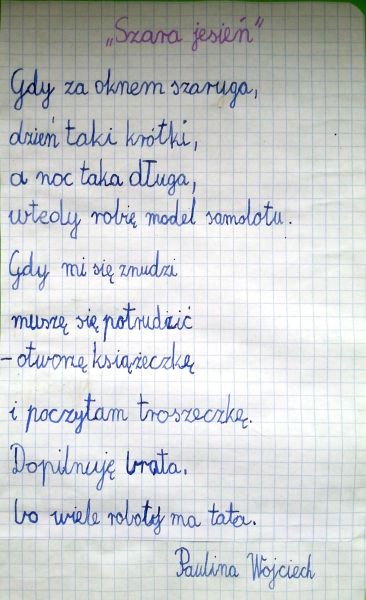 „Szara jesień"
Gdy za oknem szaruga,
dzień taki krótki,
a noc taka długa,
wtedy robię model samolotu.
Gdy mi się znudzi
muszę się potrudzić
– otworzę książeczkę
i poczytam troszeczkę.
Dopilnuję brata.
bo wiele roboty ma tata.
Paulina Wojciech